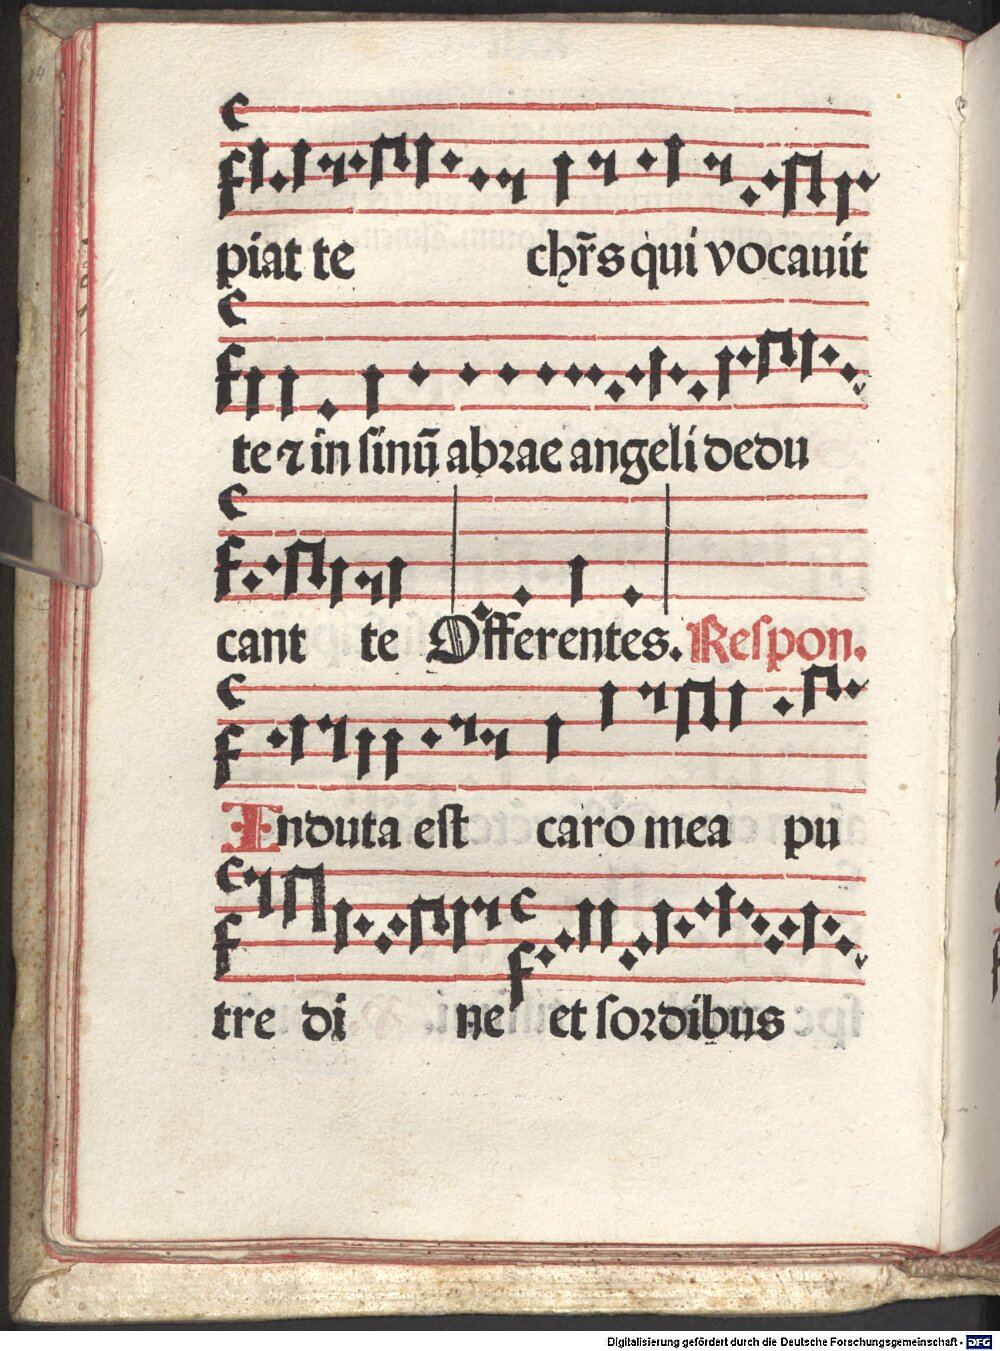 24
piat te chr̃s qui vocauit
te ⁊ in ſinū abꝛae angeli dedu
cant te Offerentes. Reſpon.
Induta eſt caro mea pu
tre di ne et ſoꝛdibus
Digitalisierung gefördert durch die Deutsche Forschungsgemeinschaft - DFG